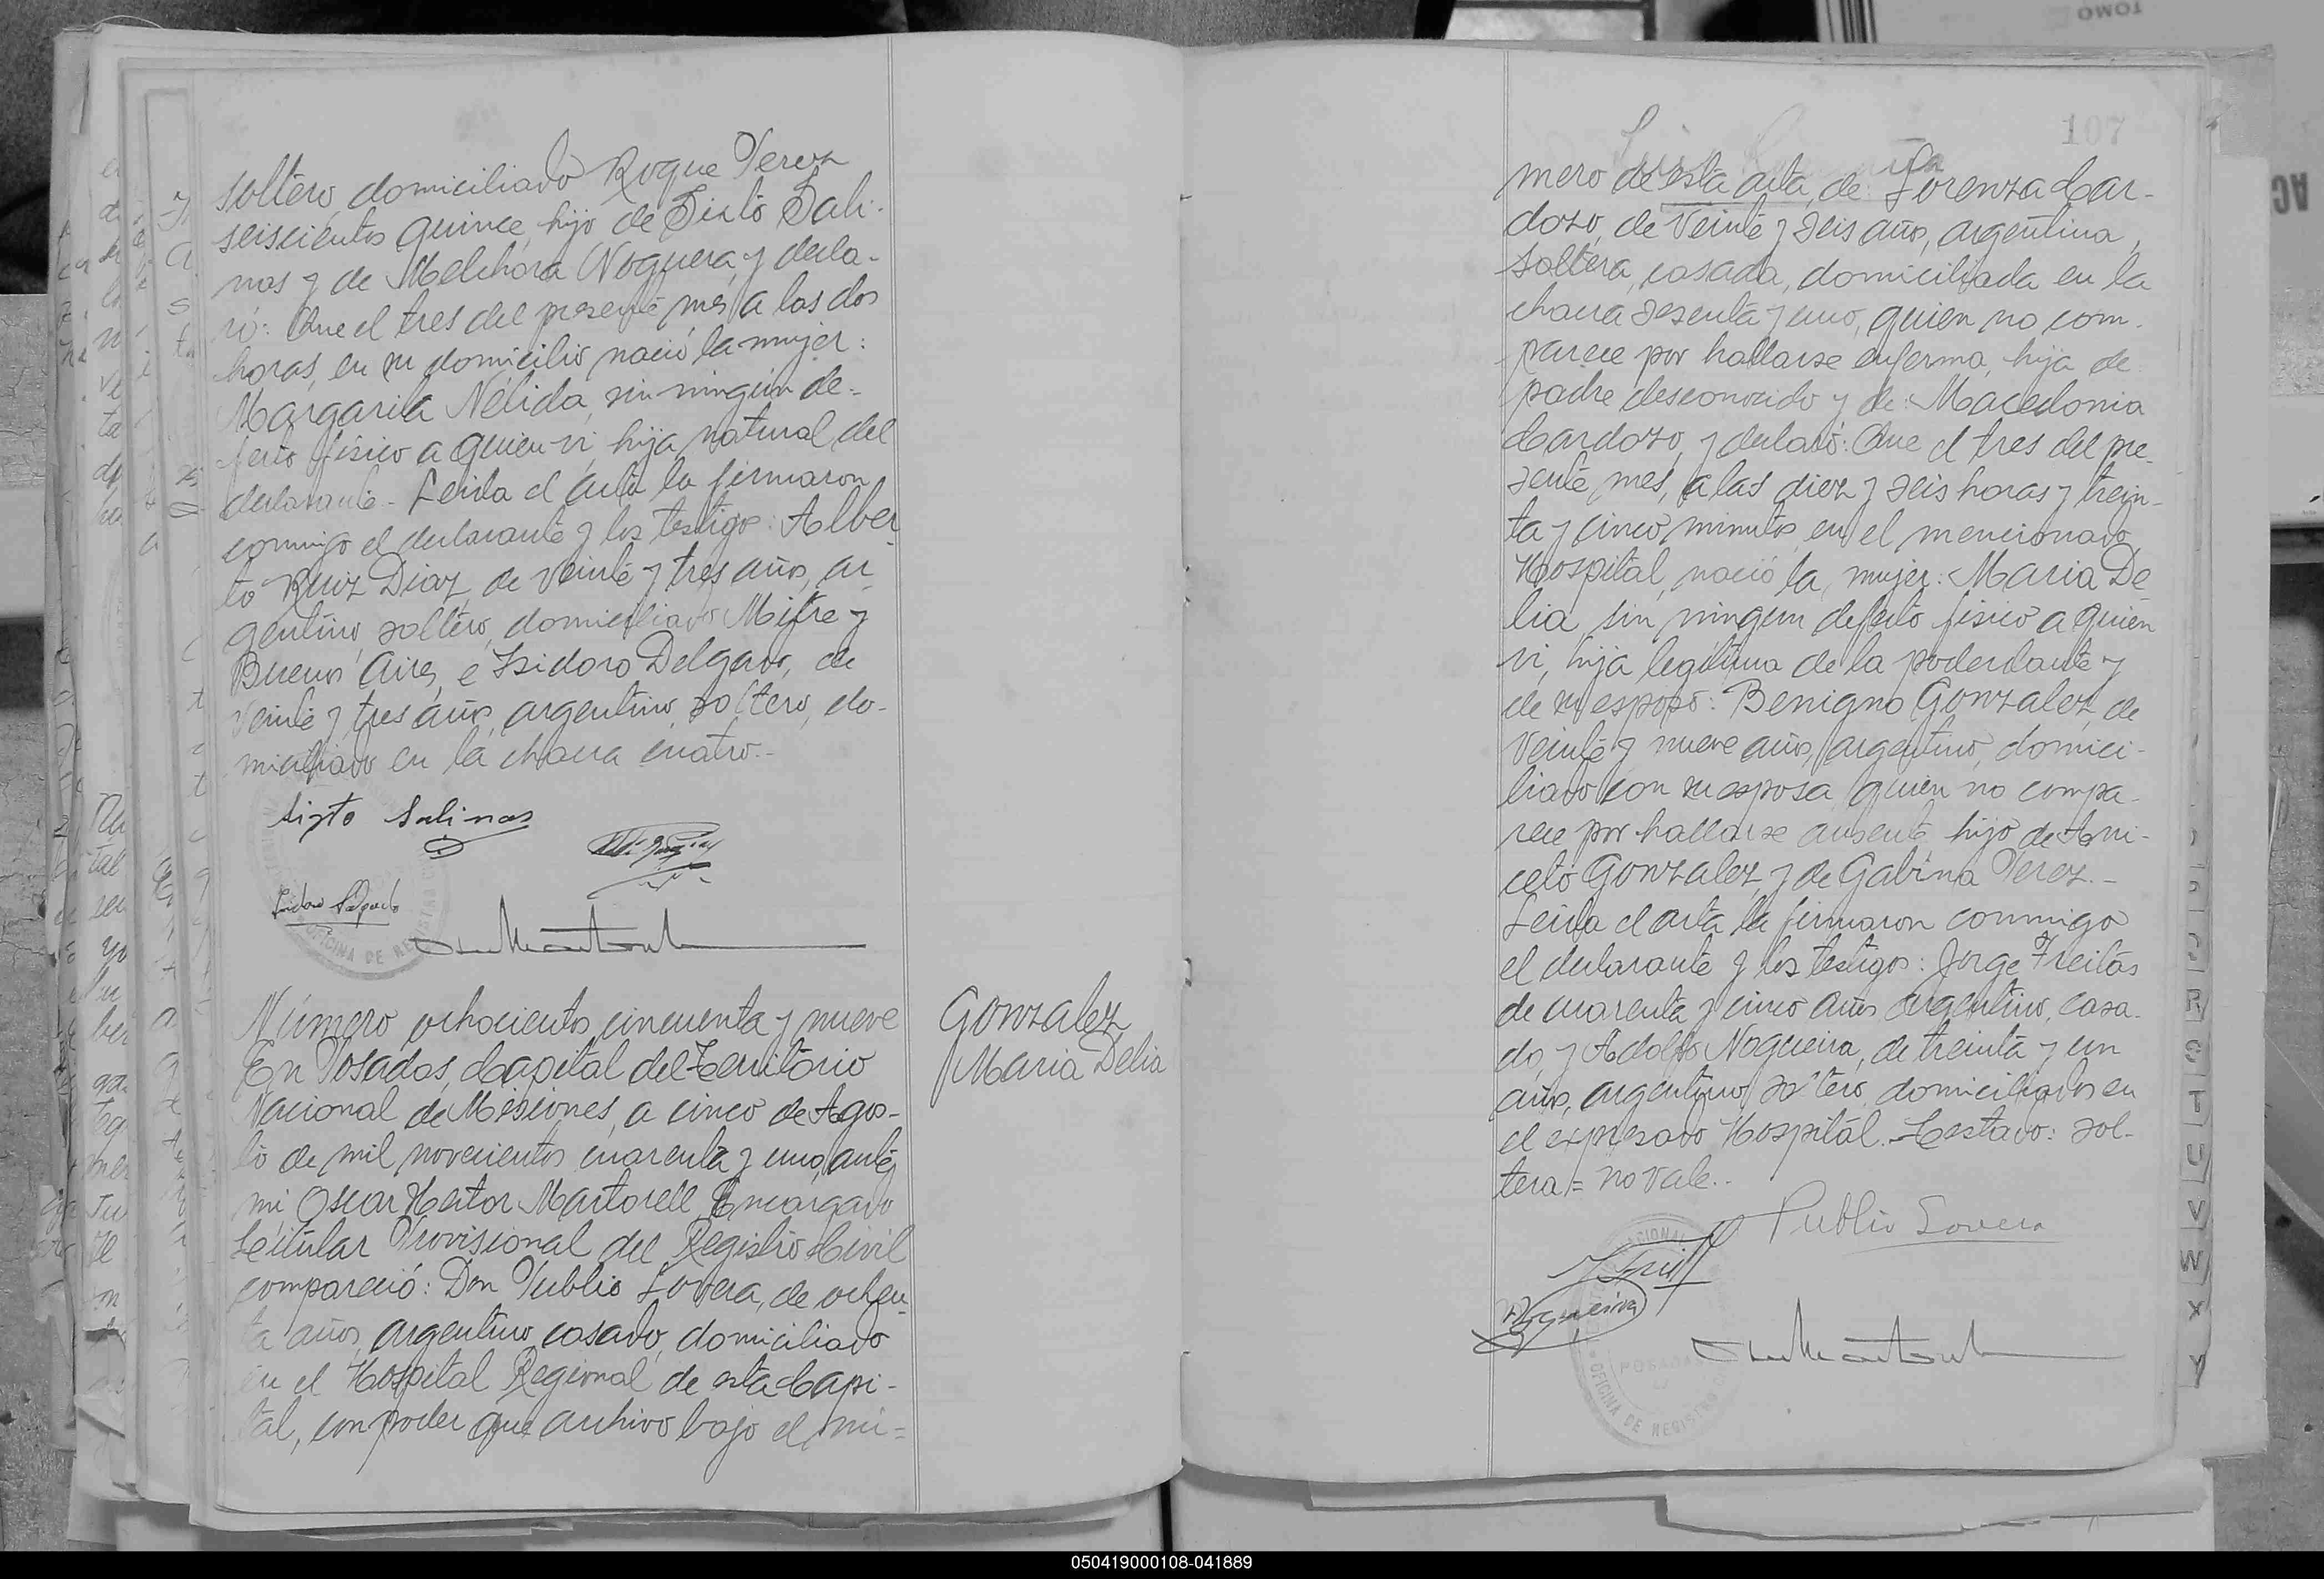 soltero, domiciliado Roque Perez
seiscientos quince, hijo de Sixto Sali-
nas y de Melchora Noguera, y decla-
ró: Que el tres del presente mes, a las dos
horas, en su domicilio nació la mujer:
Margarita Nélida, sin ningún de-
fecto físico a quien ví, hija natural del
declarante.- Leida el acta la firmaron
conmigo el declarante y los testigos: Alber
to Ruiz Diaz, de veinte y tres años, ar
gentino, soltero, domiciliado Mitre y
Buenos Aires, e Isidoro Delgado, de
veinte y tres años, argentino, soltero, do-
miciliado en la chacra cuatro.-
Sixto Salinas
Isidoro Delgado
OFICINA DE REGISTRO
Número ochocientos cincuenta y nueve
En Posadas, Capital del Territorio
Nacional de Misiones, a cinco de Agos-
to de mil novecientos cuarenta y uno, ante
mi Oscar Hector Martorell, Encargado
Titular Provisional del Registro Civil
compareció: Don Publio Lovera, de ochen-
ta años, argentino, casado, domiciliado
en el Hospital Regional de esta Capi-
tal, con poder que archivo bajo el nú=
Gonzalez
Maria Delia
107
mero de esta acta, de Lorenza Car-
dozo, de veinte y seis años, argentina,
soltera, casada, domiciliada en la
chacra sesenta y uno, quien no com-
parece por hallarse enferma, hija de
padre desconocido y de: Macedonia
Cardozo, y declaró: Que el tres del pre-
sente mes, a las diez y seis horas y trein-
ta y cinco minutos, en el mencionado
Hospital, nació la mujer: Maria De
lia, sin ningun defecto físico a quien
ví, hija legítima de la poderdante y
de su esposo: Benigno Gonzalez, de
veinte y nueve años, argentino, domici-
liado con su esposa, quien no compa-
rece por hallarse ausente, hijo de Ani-
ceto Gonzalez, y de Gabina Perez.-
Leida el acta la firmaron conmigo
el declarante y los testigos: Jorge Freitas
de cuarenta y cinco años, argentino, casa-
do, y Adolfo Nogueira, de treinta y un
años, argentino, soltero, domiciliados en
el expresado Hospital.- Testado: sol-
tera = no vale..
Publio Lovera
Nogueira
POSADAS
OFICINA DE REGISTRO
R
S
T
U
V
W
X
Y
TOMO
050419000108-041889